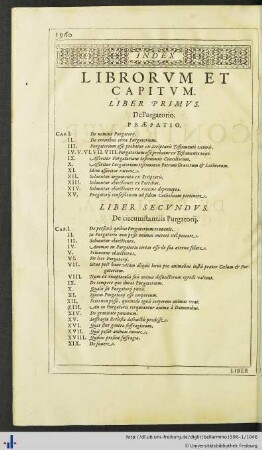 INDEX
LIBRORVM ET
CAPITVM.
LIBER PRIMVS.
De Purgatorio.
PRÆFATIO.
CAP. I. De nomine Purgatorij.
II. De erroribus circa Purgatorium.
III. Purgatorium esse probatur ex Scripturis Testamenti veteris.
IV. V. VI. VII. VIII. Purgatorium esse probatur ex Testamento novo.
IX. Asseritur Purgatorium testimoniis Conciliorum.
X. Asseritur Purgatorium testimoniis Patrum Græcorum & Latinorum.
XI. Idem asseritur ratione.
XII. Solvuntur argumenta ex Scripturis.
XIII. Solvuntur obiectiones ex Patribus.
XIV. Solvuntur obiectiones ex ratione
XV. Purgatorij confessionem ad fidem Catholicam pertinere.
LIBER SECVNDVS.
De circumstantiis Purgatorij.
CAP. I. De personis quibus Purgatorium convenit.
II. In Purgatorio non posse animas mereri vel peccare.
III. Solvuntur obiectiones.
IV. Animas in Purgatorio certas esse de sua æterna salute.
V. Solvuntur obiectiones.
VI. De loco Purgatorij.
VII. Sitne post hanc vitam aliquis locus pro animabus iustis præter Cælum & Purgatorium.
VIII. Num ex receptaculis suis animæ defunctorum egredi valeant.
IX. De tempore quo durat Purgatorium.
X. Qualis sit Purgatorij pœna.
XI. Ignem Purgatorij esse corporeum.
XII. Non posse sciri, quomodo ignis corporeus animas urat.
XIII. An in Purgatorio torqueantur animæ a Dæmonibus.
XIV. De gravitate pœnarum.
XV. Suffragia Ecclesiæ defunctis prodesse.
XVI. Quot sint genera suffragiorum.
XVII. Qui possint animas iuvare.
XVIII. Quibus prosint suffragia.
XIX. De funere.
LIBER
© Universitätsbibliothek Freiburg